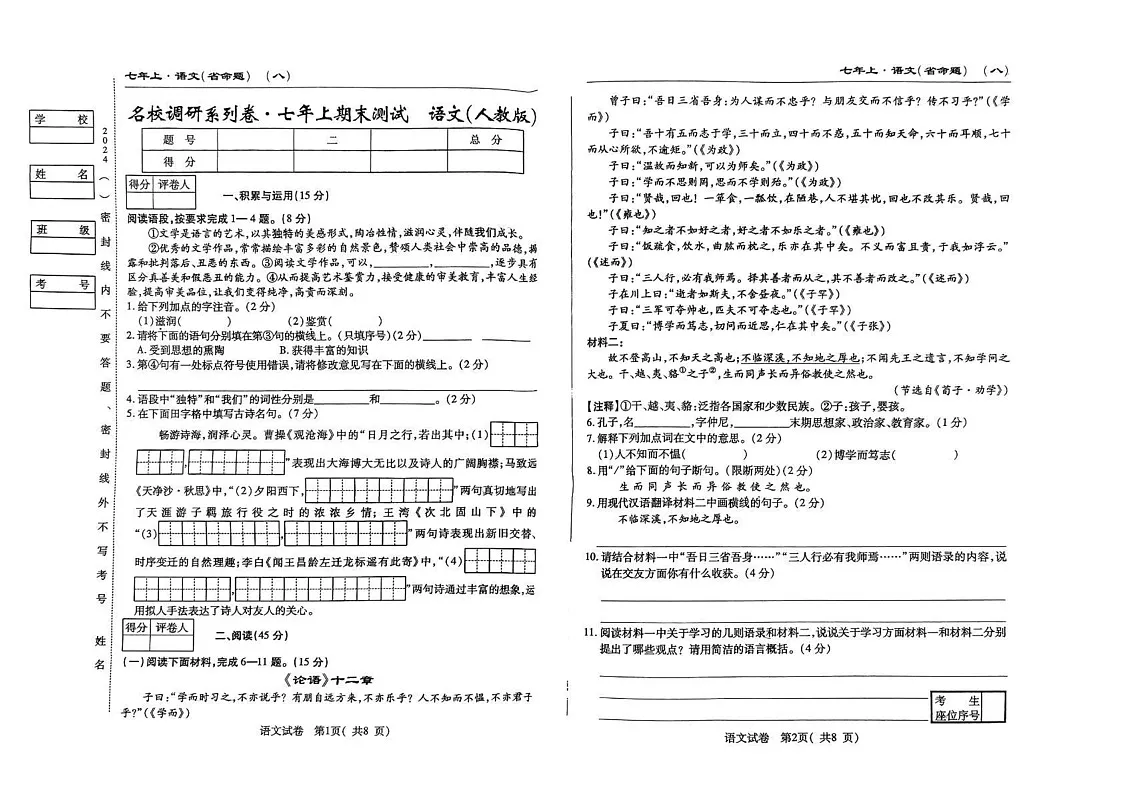 七年上·语文(省命题) (八)
名校调研系列卷·七年上期末测试 语文(人教版)
学 校
姓 名
班 级
考 号
2024(一)密封线内不要答题、密封线外不写考号 姓名
题 号 一 二 三 总 分
得 分
得分 评卷人
一、积累与运用(15分)
阅读语段,按要求完成1—4题。(8分)
①文学是语言的艺术,以其独特的美感形式,陶冶性情,滋润心灵,伴随我们成长。
②优秀的文学作品,常常描绘丰富多彩的自然景色,赞颂人类社会中崇高的品德,揭
露和批判落后、丑恶的东西。③阅读文学作品,可以,________,________,逐步具有
区分真善美和假恶丑的能力。④从而提高艺术鉴赏力,接受健康的审美教育,丰富人生经
验,提高审美品位,让我们变得纯净,高贵而深刻。
1.给下列加点的字注音。(2分)
(1)滋润( ) (2)鉴赏( )
2.请将下面的语句分别填在第③句的横线上。(只填序号)(2分)________ ________
A.受到思想的熏陶 B.获得丰富的知识
3.第④句有一处标点符号使用错误,请将修改意见写在下面的横线上。(2分)
4.语段中“独特”和“我们”的词性分别是________和________。(2分)
5.在下面田字格中填写古诗名句。(7分)
畅游诗海,润泽心灵。曹操《观沧海》中的“日月之行,若出其中;(1)
,”表现出大海博大无比以及诗人的广阔胸襟;马致远
《天净沙·秋思》中,“(2)夕阳西下,”两句真切地写出
了天涯游子羁旅行役之时的浓浓乡情;王湾《次北固山下》中的
“(3),”两句诗表现出新旧交替、
时序变迁的自然理趣;李白《闻王昌龄左迁龙标遥有此寄》中,“(4)
,”两句诗通过丰富的想象,运
用拟人手法表达了诗人对友人的关心。
得分 评卷人
二、阅读(45分)
(一)阅读下面材料,完成6—11题。(15分)
《论语》十二章
子曰:“学而时习之,不亦说乎?有朋自远方来,不亦乐乎?人不知而不愠,不亦君子
乎?”(《学而》)
语文试卷 第1页( 共8 页)
七年上·语文(省命题) (八)
曾子曰:“吾日三省吾身:为人谋而不忠乎?与朋友交而不信乎?传不习乎?”(《学
而》)
子曰:“吾十有五而志于学,三十而立,四十而不惑,五十而知天命,六十而耳顺,七十
而从心所欲,不逾矩。”(《为政》)
子曰:“温故而知新,可以为师矣。”(《为政》)
子曰:“学而不思则罔,思而不学则殆。”(《为政》)
子曰:“贤哉,回也!一箪食,一瓢饮,在陋巷,人不堪其忧,回也不改其乐。贤哉,回
也!”(《雍也》)
子曰:“知之者不如好之者,好之者不如乐之者。”(《雍也》)
子曰:“饭疏食,饮水,曲肱而枕之,乐亦在其中矣。不义而富且贵,于我如浮云。”
(《述而》)
子曰:“三人行,必有我师焉。择其善者而从之,其不善者而改之。”(《述而》)
子在川上曰:“逝者如斯夫,不舍昼夜。”(《子罕》)
子曰:“三军可夺帅也,匹夫不可夺志也。”(《子罕》)
子夏曰:“博学而笃志,切问而近思,仁在其中矣。”(《子张》)
材料二:
故不登高山,不知天之高也;不临深溪,不知地之厚也;不闻先王之遗言,不知学问之
大也。干、越、夷、貉①之子②,生而同声长而异俗教使之然也。
(节选自《荀子·劝学》)
【注释】①干、越、夷、貉:泛指各国家和少数民族。②子:孩子,婴孩。
6.孔子,名________,字仲尼,________末期思想家、政治家、教育家。(1分)
7.解释下列加点词在文中的意思。(2分)
(1)人不知而不愠( ) (2)博学而笃志( )
8.用“/”给下面的句子断句。(限断两处)(2分)
生而同声长而异俗教使之然也。
9.用现代汉语翻译材料二中画横线的句子。(2分)
不临深溪,不知地之厚也。
10.请结合材料一中“吾日三省吾身……”“三人行必有我师焉……”两则语录的内容,说
说在交友方面你有什么收获。(4分)
11.阅读材料一中关于学习的几则语录和材料二,说说关于学习方面材料一和材料二分别
提出了哪些观点?请用简洁的语言概括。(4分)
考 生
座位序号
语文试卷 第2页( 共8 页)